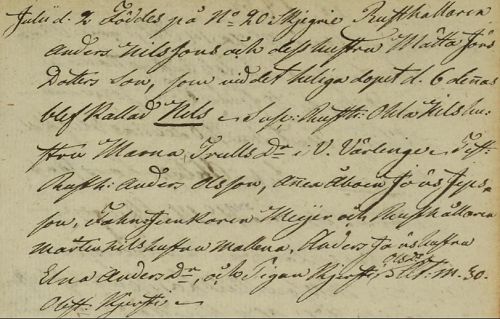 Julii d. 2 Föddes på No 20 Skjegrie Rusthållaren
Anders Nilssons och dess hustru Mätta Jöns
Dotters Son, som vid det heliga dopet d. 6 dennas
blef kallad Nils Susc: Rustt: Ohla Nils hu-
stru Marna Trulls Dr i V. Värlinge Test:
Rusth: Anders Olsson, Åboen Jöns Jeps-
son, Fahnjunkaren Meijer och Rusthållaren
Mårten Nils hustru Mallena, Anders Jöns hustru
Elna Anders Dr, och Pigan Kjersti Olsdr St. M. 30.
Obst: Kjersti